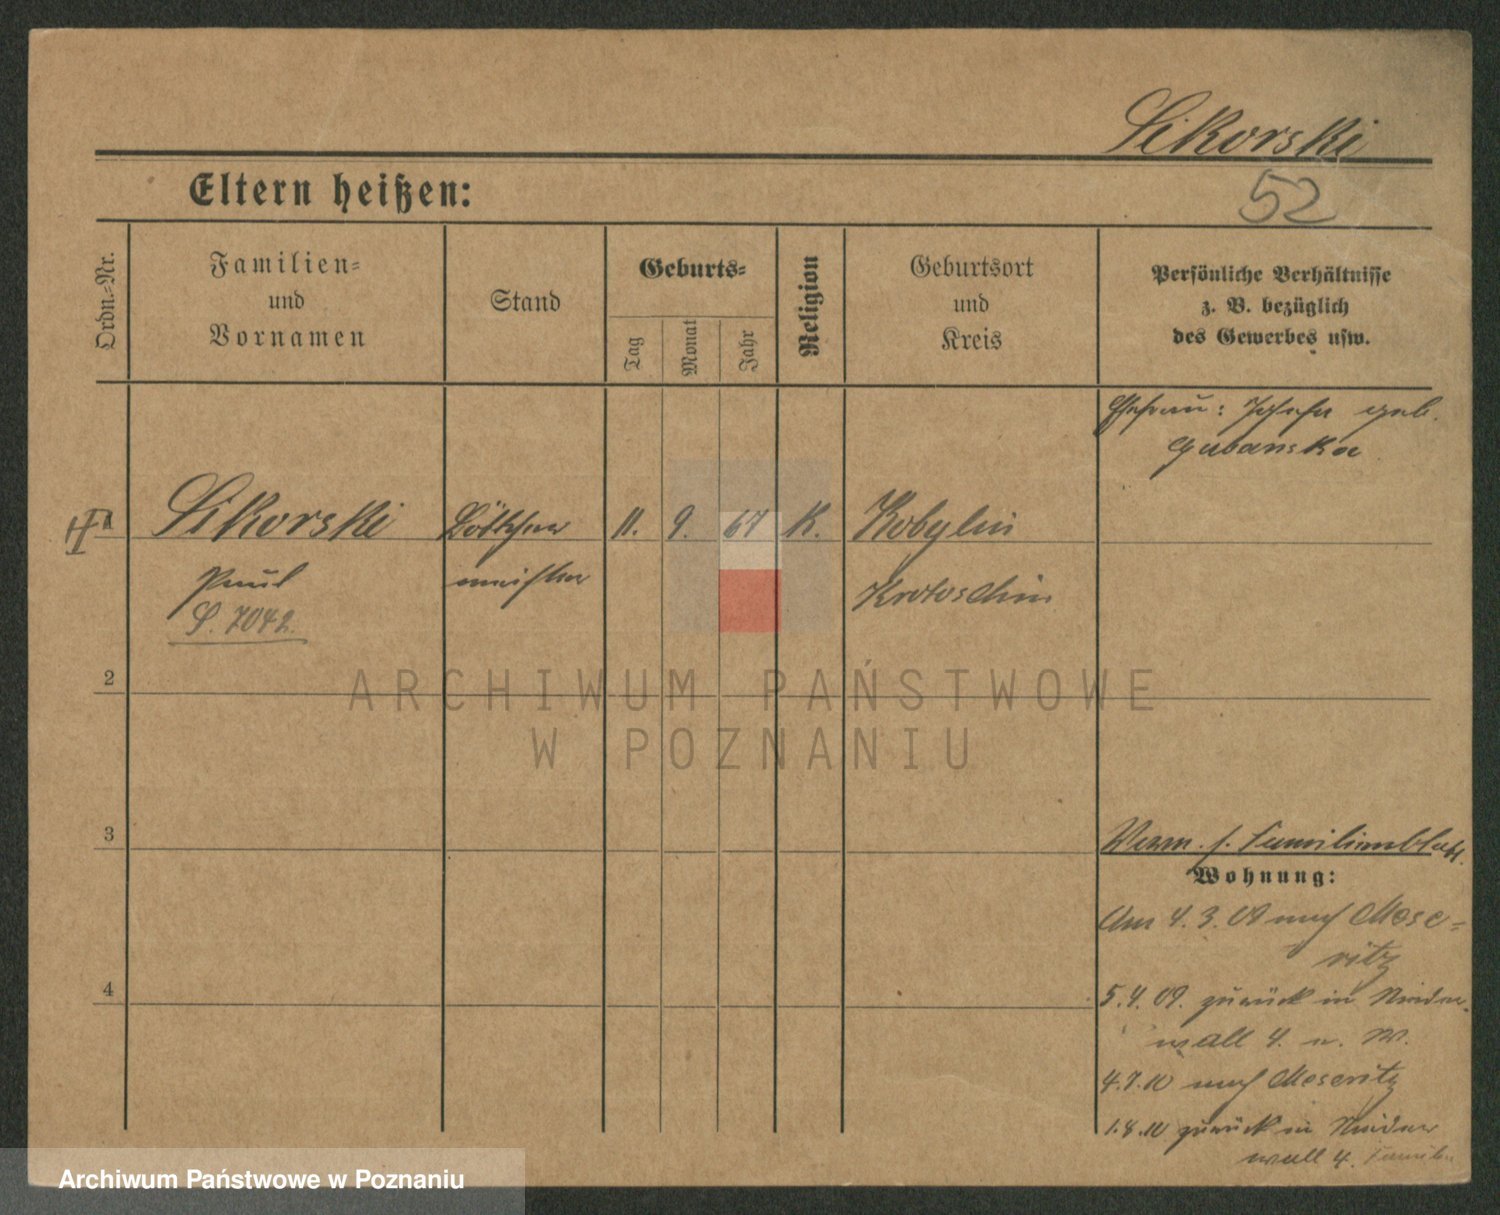 Sikorski
Eltern heißen:
52
Ordn.-Nr.
Familien-
und
Vornamen
Stand
Geburts-
Tag
Monat
Jahr
Religion
Geburtsort
und
Kreis
Persönliche Verhältnisse
z. B. bezüglich
des Gewerbes usw.
Ehefrau: Josefa geb.
Gubanska
1
Sikorski Böttcher 11. 9. 67 K. Kobylin
Paul meister Krotoschin
S. 7042.
2
3
4
Verm. s. Familienblatt.
Wohnung:
Am 4.3.09 nach Mese-
ritz
5.4.09. zurück in
wall 4. n. W.
4.7.10 nach Meseritz
1.8.10 zurück in
wall 4.
ARCHIWUM PAŃSTWOWE
W POZNANIU
Archiwum Państwowe w Poznaniu